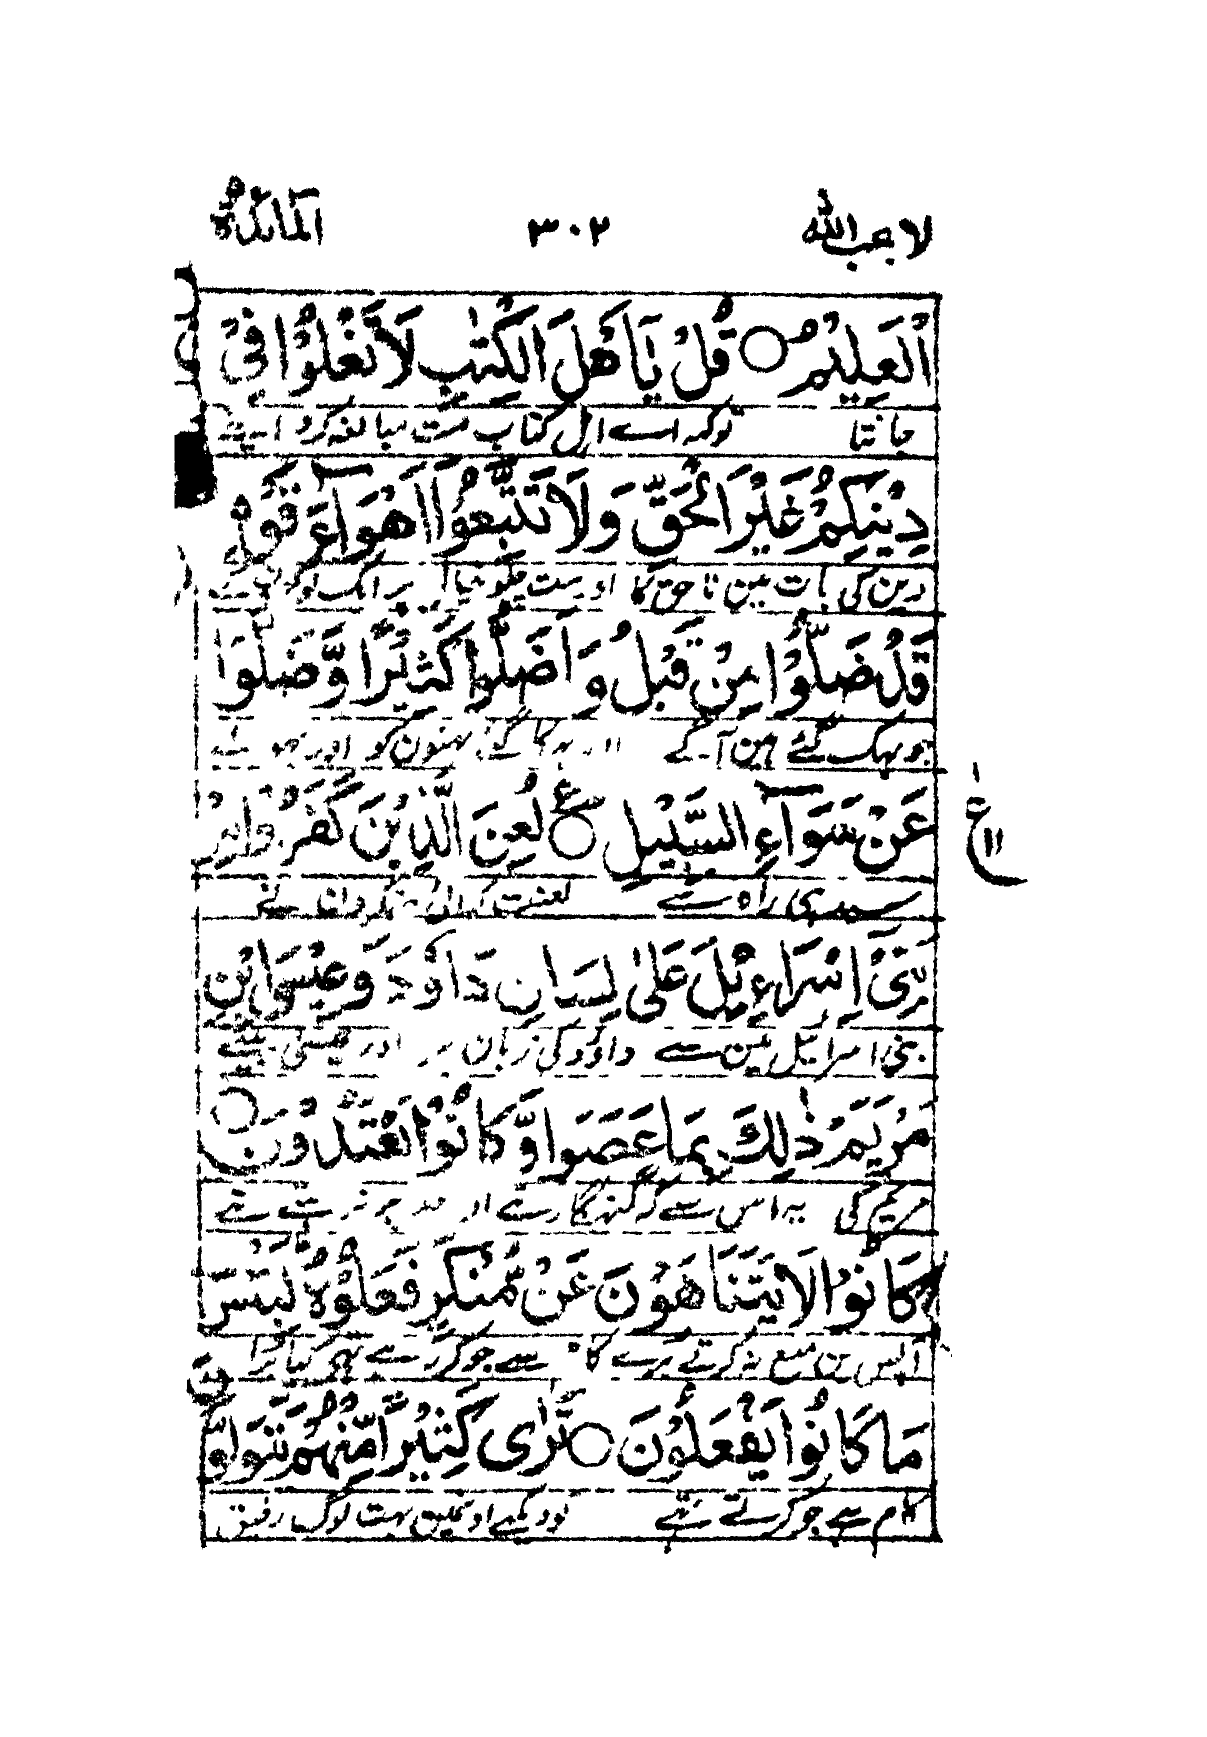 لا يحب الله ٣٠٢ المائدة
الْعَلِيْمُ ○ قُلْ يٰۤاَهْلَ الْكِتٰبِ لَا تَغْلُوْا فِيْ
جانتا تو کہہ اے اہل کتاب مت مبالغہ کرو اپنے
دِيْنِكُمْ غَيْرَ الْحَقِّ وَلَا تَتَّبِعُوْۤا اَهْوَآءَ قَوْمٍ
دین کی بات مین ناحق کا اور مت
قَدْ ضَلُّوْا مِنْ قَبْلُ وَاَضَلُّوْا كَثِيْرًا وَّضَلُّوْا
جو بہک گئے ہین آگے اور بہکا گئے بہتون کو اور
عَنْ سَوَآءِ السَّبِيْلِ ○ ع لُعِنَ الَّذِيْنَ كَفَرُوْا مِنْۢ
سیدہی راہ سے لعنت
ع ١١
بَنِيْۤ اِسْرَآءِيْلَ عَلٰى لِسَانِ دَاوٗدَ وَعِيْسَى ابْنِ
بنی اسرائیل مین سے داؤد کی زبان پر اور عیسیٰ بیٹے
مَرْيَمَ ذٰلِكَ بِمَا عَصَوْا وَّكَانُوْا يَعْتَدُوْنَ ○
مریم کی یہ اس سے کہ گنہگار تھے اور حد پر نہ رہتے تھے
كَانُوْا لَا يَتَنَاهَوْنَ عَنْ مُّنْكَرٍ فَعَلُوْهُ لَبِئْسَ
آپس مین منع نہ کرتے برے کام سے جو کر رہے تھے کیا برا
مَا كَانُوْا يَفْعَلُوْنَ ○ تَرٰى كَثِيْرًا مِّنْهُمْ يَتَوَلَّوْنَ
کام ہے جو کرتے تھے تو دیکھے اونمین بہت لوگ رفیق